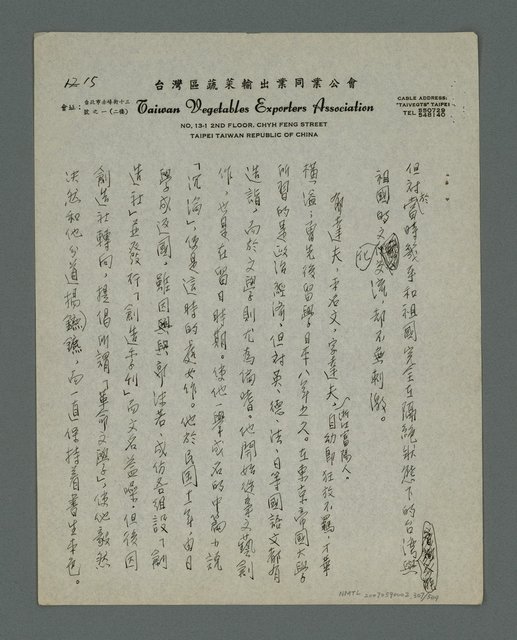 12 15
台灣區蔬菜輸出業同業公會
會址：台北市赤峰街十三號之一(二樓)
Taiwan Vegetables Exporters Association
NO. 13-1 2ND FLOOR, CHYH FENG STREET
TAIPEI TAIWAN REPUBLIC OF CHINA
CABLE ADDRESS:
"TAIVEGTS" TAIPEI
TEL 550729
548140
但對於當時幾乎和祖國完全在隔絕狀態下的台灣與
祖國的文化交流，却不無刺激。
郁達夫，本名文，字達夫，浙江富陽人。自幼即狂放不羈，才華
橫溢；曾先後留學日本八年之久。在東京帝國大學
所習的是政治經濟，但對英、德、法、日等國語文都有
造詣，而於文學則尤為偏嗜。他開始從事文藝創
作，也是在留日時期。使他一舉成名的中篇小說
「沉淪」，便是這時的處女作。他於民國十一年，由日
學成返國，雖因與郭沫若、成仿吾組設了「創
造社」並發行了「創造季刊」而文名益噪，但後因
創造社轉向，提倡所謂「革命文學」，使他毅然
決然和他們分道揚鑣，而一直保持着書生本色。
NMTL 20070590002_307/504